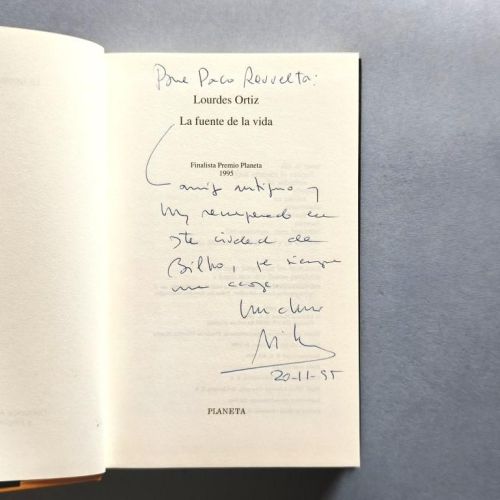 Para Paco Revuelta:
Lourdes Ortiz
La fuente de la vida
Finalista Premio Planeta
1995
amigo antiguo y
hoy recuperado en
este ciudad de
Bilbao, que siempre
me acoge
20-11-95
PLANETA